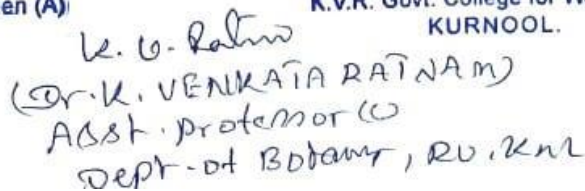 en (A)
K.V.R. Govt. College for W
KURNOOL.
K. V. Ratna
(Dr. K. VENKATA RATNAM)
Asst. Professor (C)
Dept. of Botany, RU. Knl